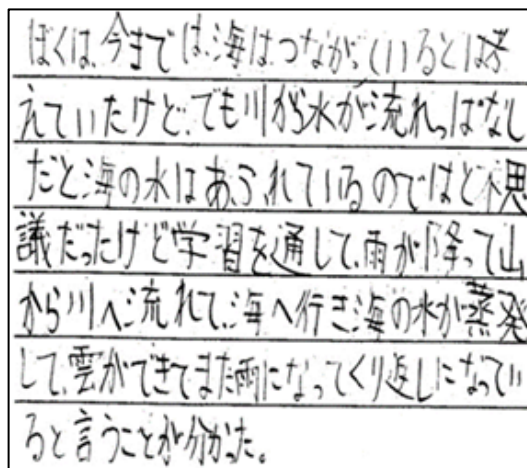 ぼくは、今までは、海はつながっているとは考
えていたけど、でも川から水が流れっぱなし
だと海の水はあふれているのではと不思
議だったけど学習を通して、雨が降って山
から川へ流れて、海へ行き海の水が蒸発
して、雲ができてまた雨になってくり返しになってい
ると言うことが分かった。